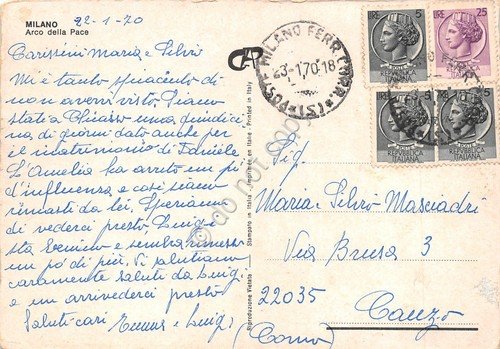 MILANO
Arco della Pace
22-1-70
Carissimi Maria e Silvio
Mi è tanto spiacente di
non avervi visto. Siamo
stati a Chiasso una quindici
na di giorni dato anche per
il matrimonio di Daniele
L'Amelia ha avuto un pò
d'influenza e così siamo
rimasti da lei. Speriamo
di vederci presto, Luigi
sta benino e sembra rimesso
un pò di più. Vi salutiamo
caramente saluti da Luigi
e un arrivederci presto
Saluti cari e Luigi
Riproduzione Vietata
Stampato in Italia
Imprimée en Italie
Printed in Italy
MILANO FERR. CORR.
23-1.70.18
LIRE 5
LIRE 25
LIRE 5
LIRE 5
REPUBBLICA
ITALIANA
REPUBBLICA
ITALIANA
REPUBBLICA
ITALIANA
REPUBBLICA
ITALIANA
Sig.
Maria e Silvio Masciadri
Via Brusa 3
22035
Canzo
(Como)